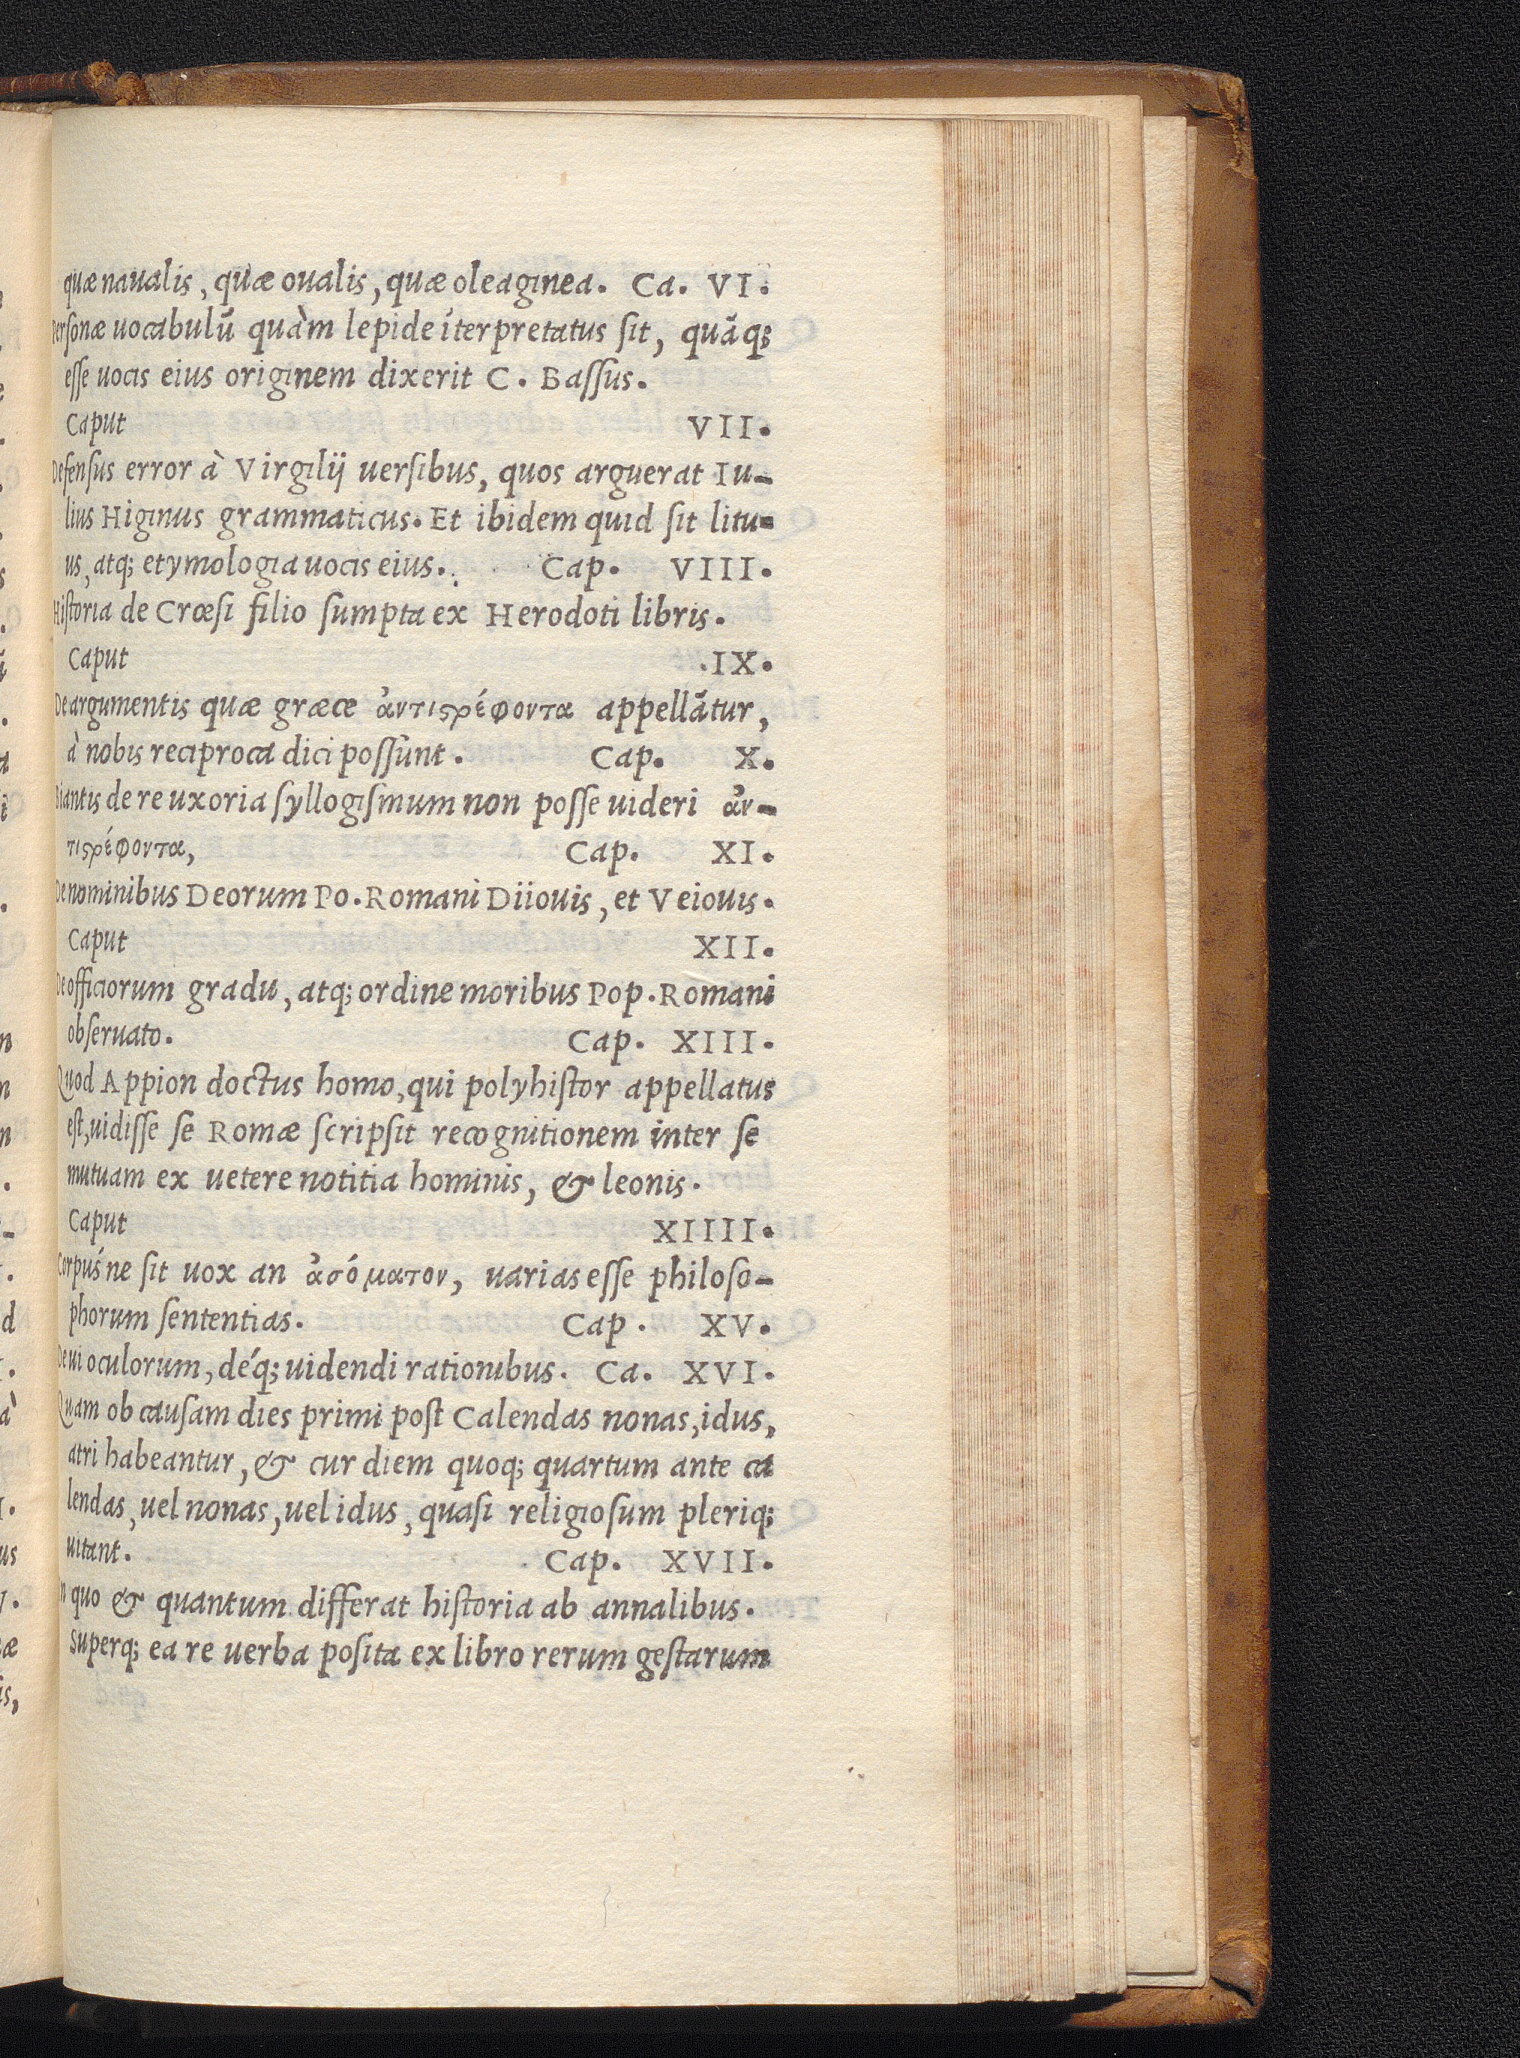 quæ naualis, quæ oualis, quæ oleaginea. Ca. VI.
Personæ uocabulū quàm lepide īterpretatus ſit, quāq;
eſſe uocis eius originem dixerit C. Baſſus.
Caput VII.
Defensus error à Virgilij uerſibus, quos arguerat Iu-
lius Higinus grammaticus. Et ibidem quid ſit litu-
us, atq; etymologia uocis eius. Cap. VIII.
Hiſtoria de Crœſi filio ſumpta ex Herodoti libris.
Caput .IX.
De argumentis quæ græce ἀντιςρέφοντα appellātur,
à nobis reciproca dici poſſunt. Cap. X.
Biantis de re uxoria ſyllogiſmum non poſſe uideri ἀν-
τιςρέφοντα, Cap. XI.
De nominibus Deorum Po. Romani Diiouis, et Veiouis.
Caput XII.
De officiorum gradu, atq; ordine moribus Pop. Romani
obſeruato. Cap. XIII.
Quod Appion doctus homo, qui polyhiſtor appellatus
eſt, uidiſſe ſe Romæ ſcripſit recognitionem inter ſe
mutuam ex uetere notitia hominis, & leonis.
Caput XIIII.
Corpúsne ſit uox an ἀσόματον, uarias eſſe philoſo-
phorum ſententias. Cap. XV.
De ui oculorum, déq; uidendi rationibus. Ca. XVI.
Quam ob cauſam dies primi poſt Calendas nonas, idus,
atri habeantur, & cur diem quoq; quartum ante ca
lendas, uel nonas, uel idus, quaſi religioſum pleriq;
uitant. Cap. XVII.
In quo & quantum differat hiſtoria ab annalibus.
Superq; ea re uerba poſita ex libro rerum geſtarum